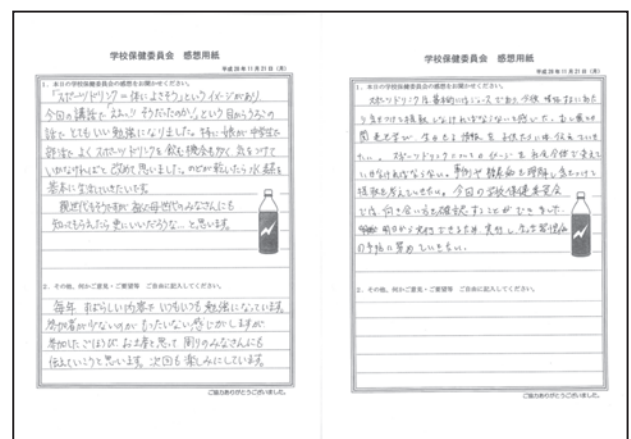 学校保健委員会　感想用紙
平成28年11月21日（月）
1、本日の学校保健委員会の感想をお聞かせください。
「スポーツドリンク＝体によさそう」というイメージがあり
今回の講話で「えぇっ そうだったのか!」という目からうろこの
話で とてもいい勉強になりました。特に娘が中学生で
部活で よく スポーツドリンクを飲む機会も多く 気をつけて
いかなければと 改めて思いました。のどが乾いたら水・麦茶を
基本に生活していきたいです。
親世代もそうですが 祖父母世代のみなさんにも
知ってもらえたら 更にいいだろうな…と思います。
2、その他、何かご意見・ご要望等　ご自由に記入してください。
毎年 すばらしい内容で いつもいつも 勉強になっています。
参加者が少ないのが もったいない 感じがしますが
参加したごほうび お土産と思って 周りのみなさんにも
伝えていこうと思います。次回も楽しみにしています。
ご協力ありがとうございました。
学校保健委員会　感想用紙
平成28年11月21日（月）
1、本日の学校保健委員会の感想をお聞かせください。
スポーツドリンクは基本的にはジュースであり、
り気をつけて摂取しなければならないと感じた。
たい。スポーツドリンクについてのイメージを社会全体で変えて
いかなければならない。事例や糖尿病を理解し気をつけて
摂取を考えていきたい。今回の学校保健委員会
では、向き合い方を確認することができました。
明日から実行できるため、実行し、生活習慣病
の予防に努めていきたい。
2、その他、何かご意見・ご要望等　ご自由に記入してください。
ご協力ありがとうございました。